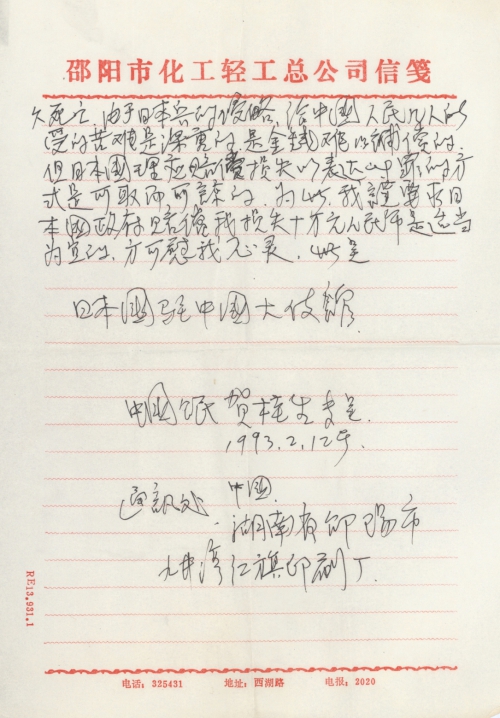 邵阳市化工轻工总公司信笺
欠死亡。由于日本兵的侵略，给中国人民几人的
受的苦难是深重的，是金钱难以補偿的，
但日本国理应赔償损失以表达此罪的方
式是可取而可諒的。为此，我謹要求日
本國政府赔償我损失十万元人民币是适当
为宜的，方可慰我心灵，此呈
日本國驻中國大使館
中國公民 贺桂生 呈
1993.2.12号.
通訊处 中国.
湖南省邵阳市
九井湾红旗印刷厂
RE13.931.1
电话：325431 地址：西湖路 电报：2020